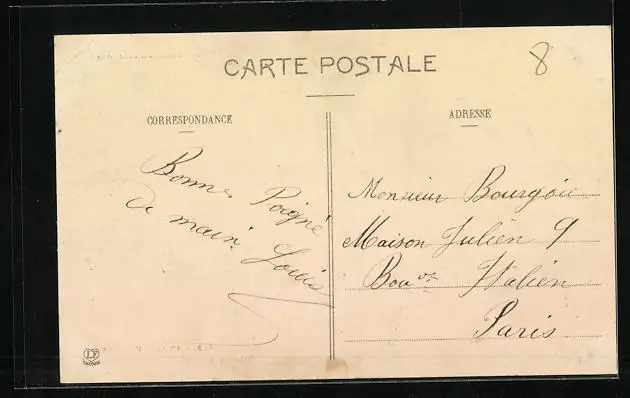 CARTE POSTALE
8
CORRESPONDANCE
ADRESSE
Bonne Poigné
de main
Louis
Monsieur Bourgoin
Maison Julien 9
Bouv Italien
Paris
LF